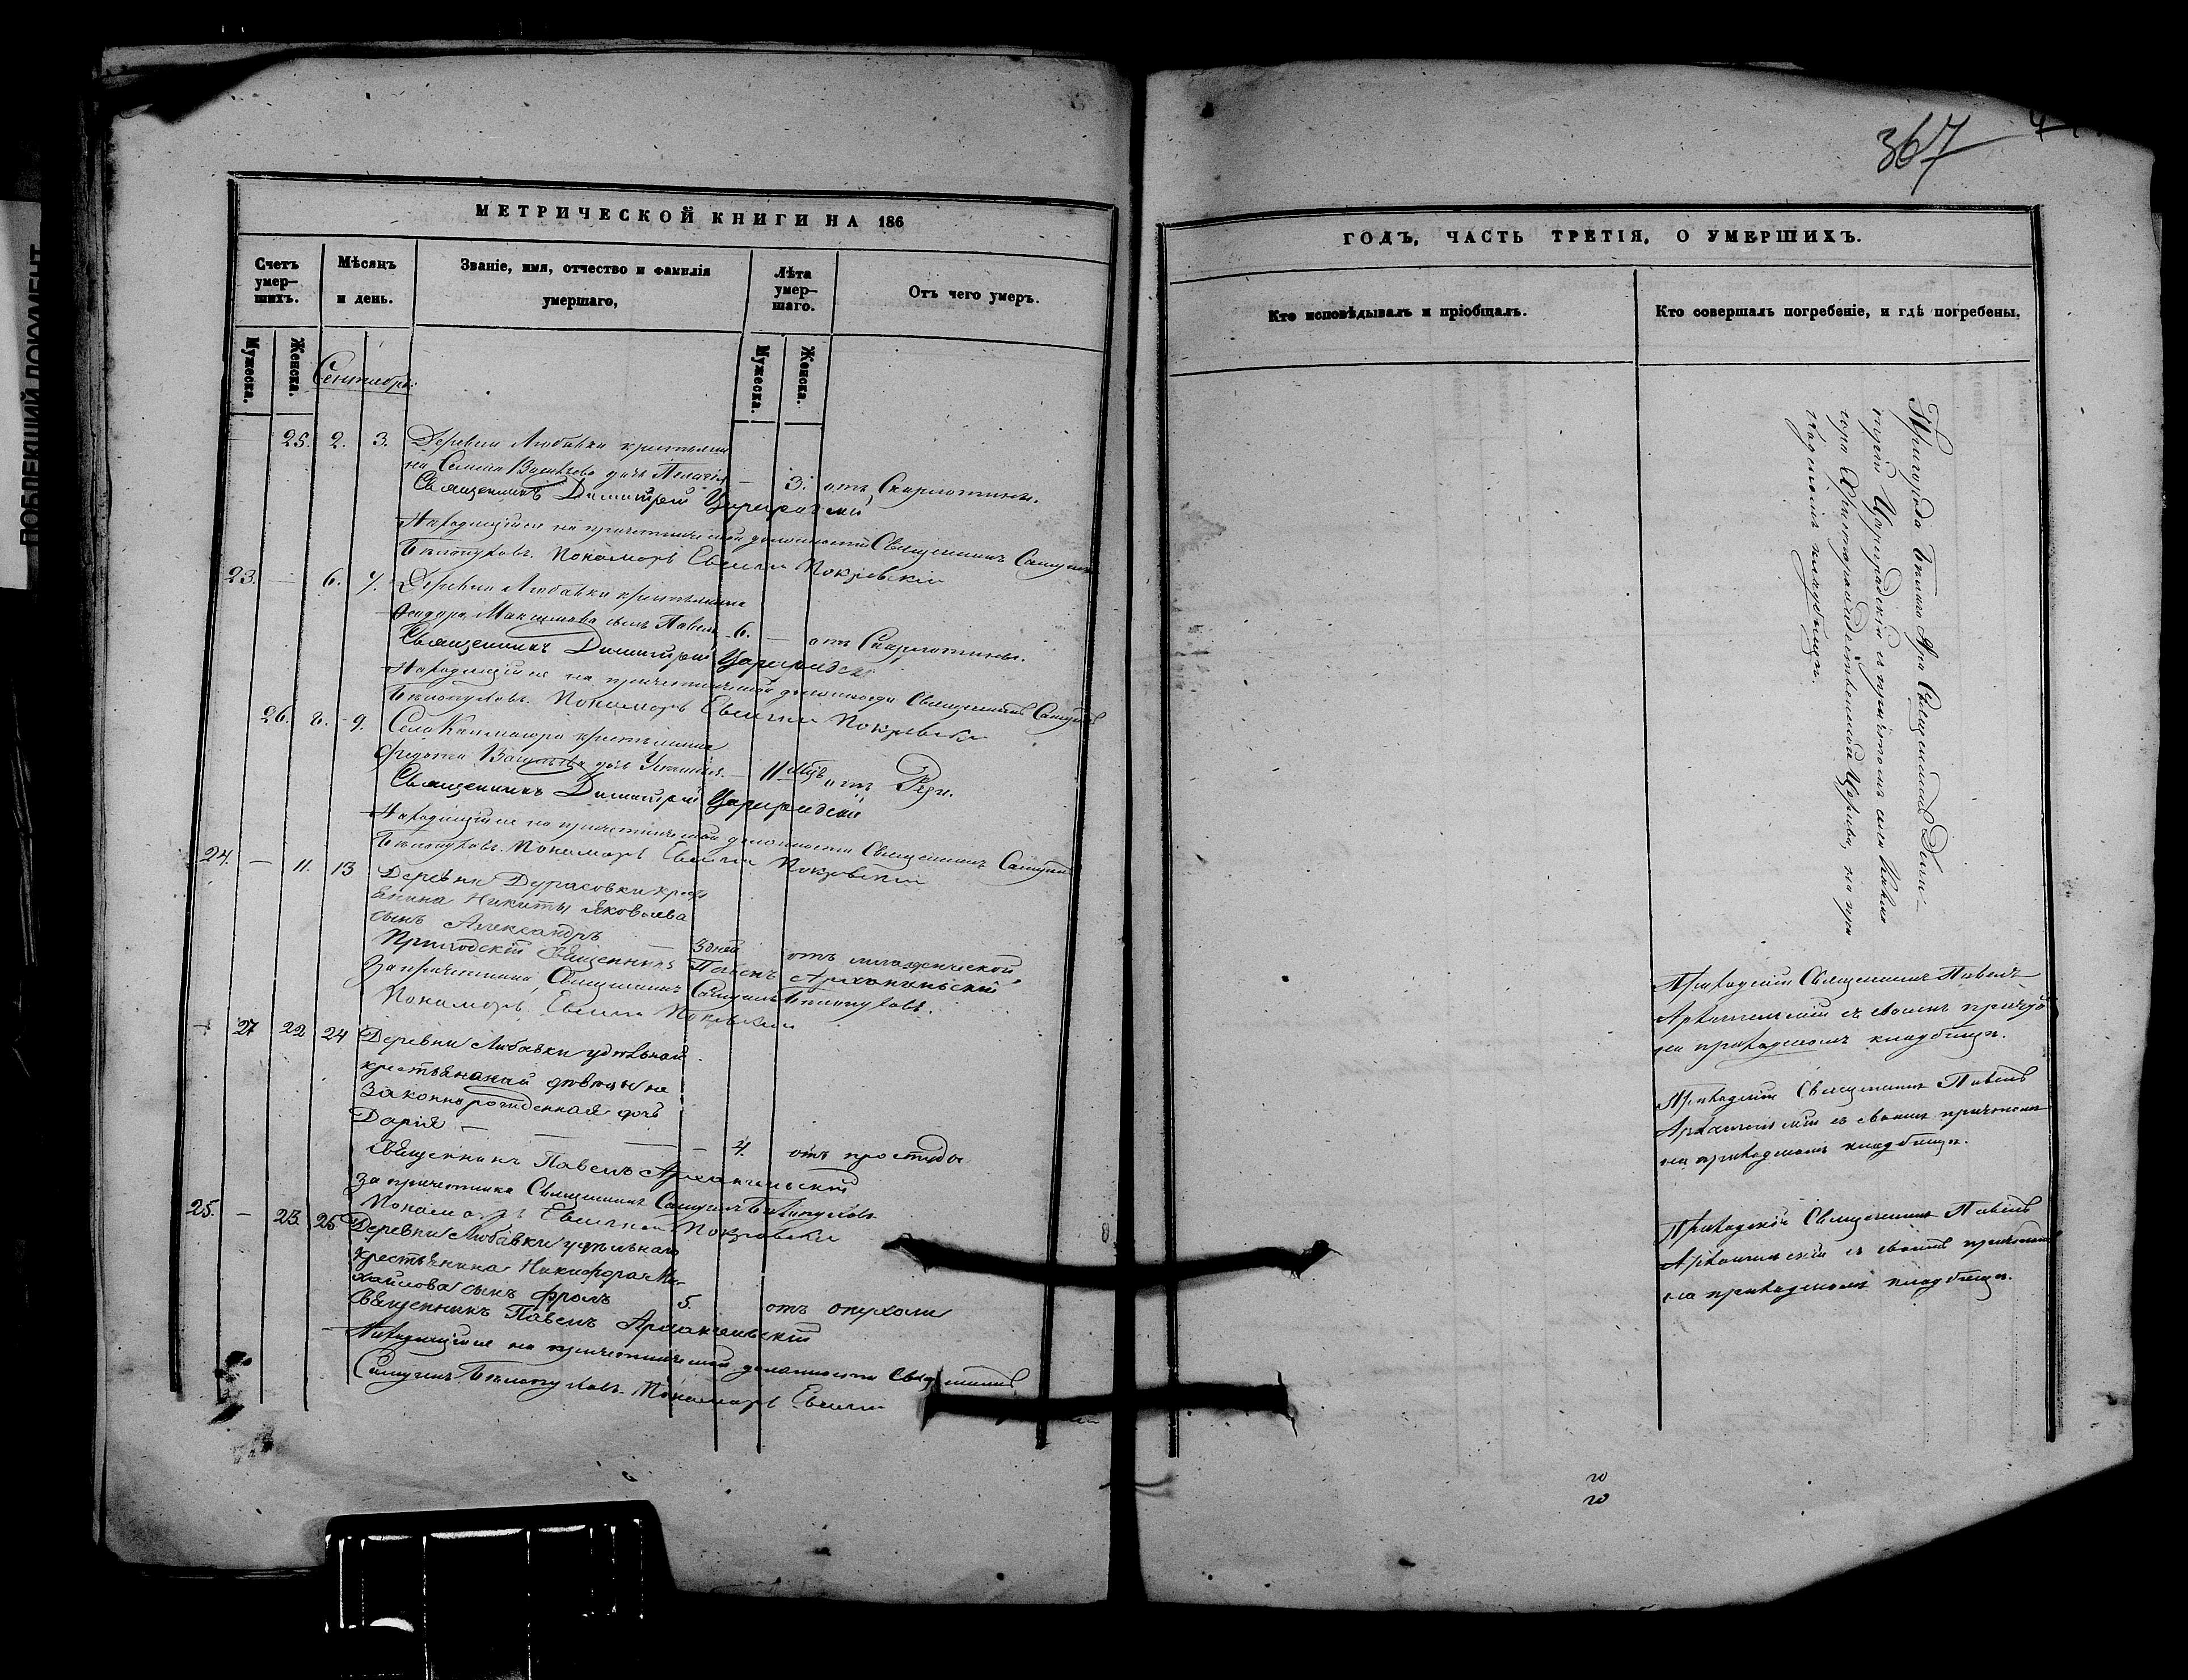 367
МЕТРИЧЕСКОЙ КНИГИ НА 186
ГОДЪ, ЧАСТЬ ТРЕТІЯ, О УМЕРШИХЪ.
Счетъ умер-
шихъ.
Мѣсяцъ
и день.
Званіе, имя, отчество и фамилія
умершаго,
Лѣта
умер-
шаго.
Отъ чего умеръ.
Кто исповѣдывалъ и пріобщалъ.
Кто совершалъ погребеніе, и гдѣ погребены,
Мужеска.
Женска.
Мужеска.
Женска.
Сентябрь
25. 2. 3. Деревни Любавки крестьяни
на Семена Васильева дочь Пелагія — 3. отъ Скарлотины.
Священникъ Димитрій Цареградскій
Находящійся на причетнической должности Священникъ Самуилъ
Бѣлопуховъ. Пономарь Евгеній Покровскій
23. — 6. 7. Деревни Любавки крестьянина
Феодора Максимова сынъ Павелъ 6. — отъ Скарлотины.
Священникъ Димитрій Цареградскій
Находящійся на причетнической должности Священникъ Самуилъ
Бѣлопуховъ. Пономарь Евгеній Покровскій
26. 8. 9. Села крестьянина
Васильева дочь — 11 мѣс. отъ
Священникъ Димитрій Цареградскій
Находящійся на причетнической должности Священникъ Самуилъ
Бѣлопуховъ. Пономарь Евгеній Покровскій
24. — 11. 13 Деревни Дурасовки крес
янина Никиты Яковлева
сынъ Александръ
3 дней отъ младенческой
Приходскій Священникъ Павелъ Архангельскій
За причетника Священникъ Самуилъ Бѣлопуховъ.
Пономарь Евгеній Покровскій
27 22 24 Деревни Любавки удѣльной
крестьянкий дѣвицы не
законнорожденная дочь
Дарія — — — — 4. отъ простуды
Священникъ Павелъ Архангельскій
За причетника Священникъ Самуилъ Бѣлопуховъ
Пономарь Евгеній Покровскій
25. — 23. 25 Деревни Любавки удѣльнаго
крестьянина Никифора Ми-
хайлова сынъ Фролъ 5. отъ опухоли
Священникъ Павелъ Архангельскій
Находящійся на причетнической должности Священникъ
Самуилъ Бѣлопуховъ. Пономарь Евгеній
Пригорода Бѣлаго Яра Священникъ Дими-
трій Цареградскій съ причтомъ села
Христорождественской Церкви, на при
ходскомъ кладбищѣ.
Приходскій Священникъ Павелъ
Архангельскій съ своимъ причто
на приходскомъ кладбищѣ.
Приходскій Священникъ Павелъ
Архангельскій съ своимъ причтомъ
на приходскомъ кладбищѣ.
Приходскій Священникъ Павелъ
Архангельскій съ своимъ причтомъ
на приходскомъ кладбищѣ.